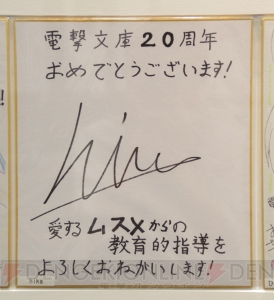 電撃文庫20周年
おめでとうございます!
hina
愛するムスメからの
教育的指導を
よろしくおねがいします!
hina